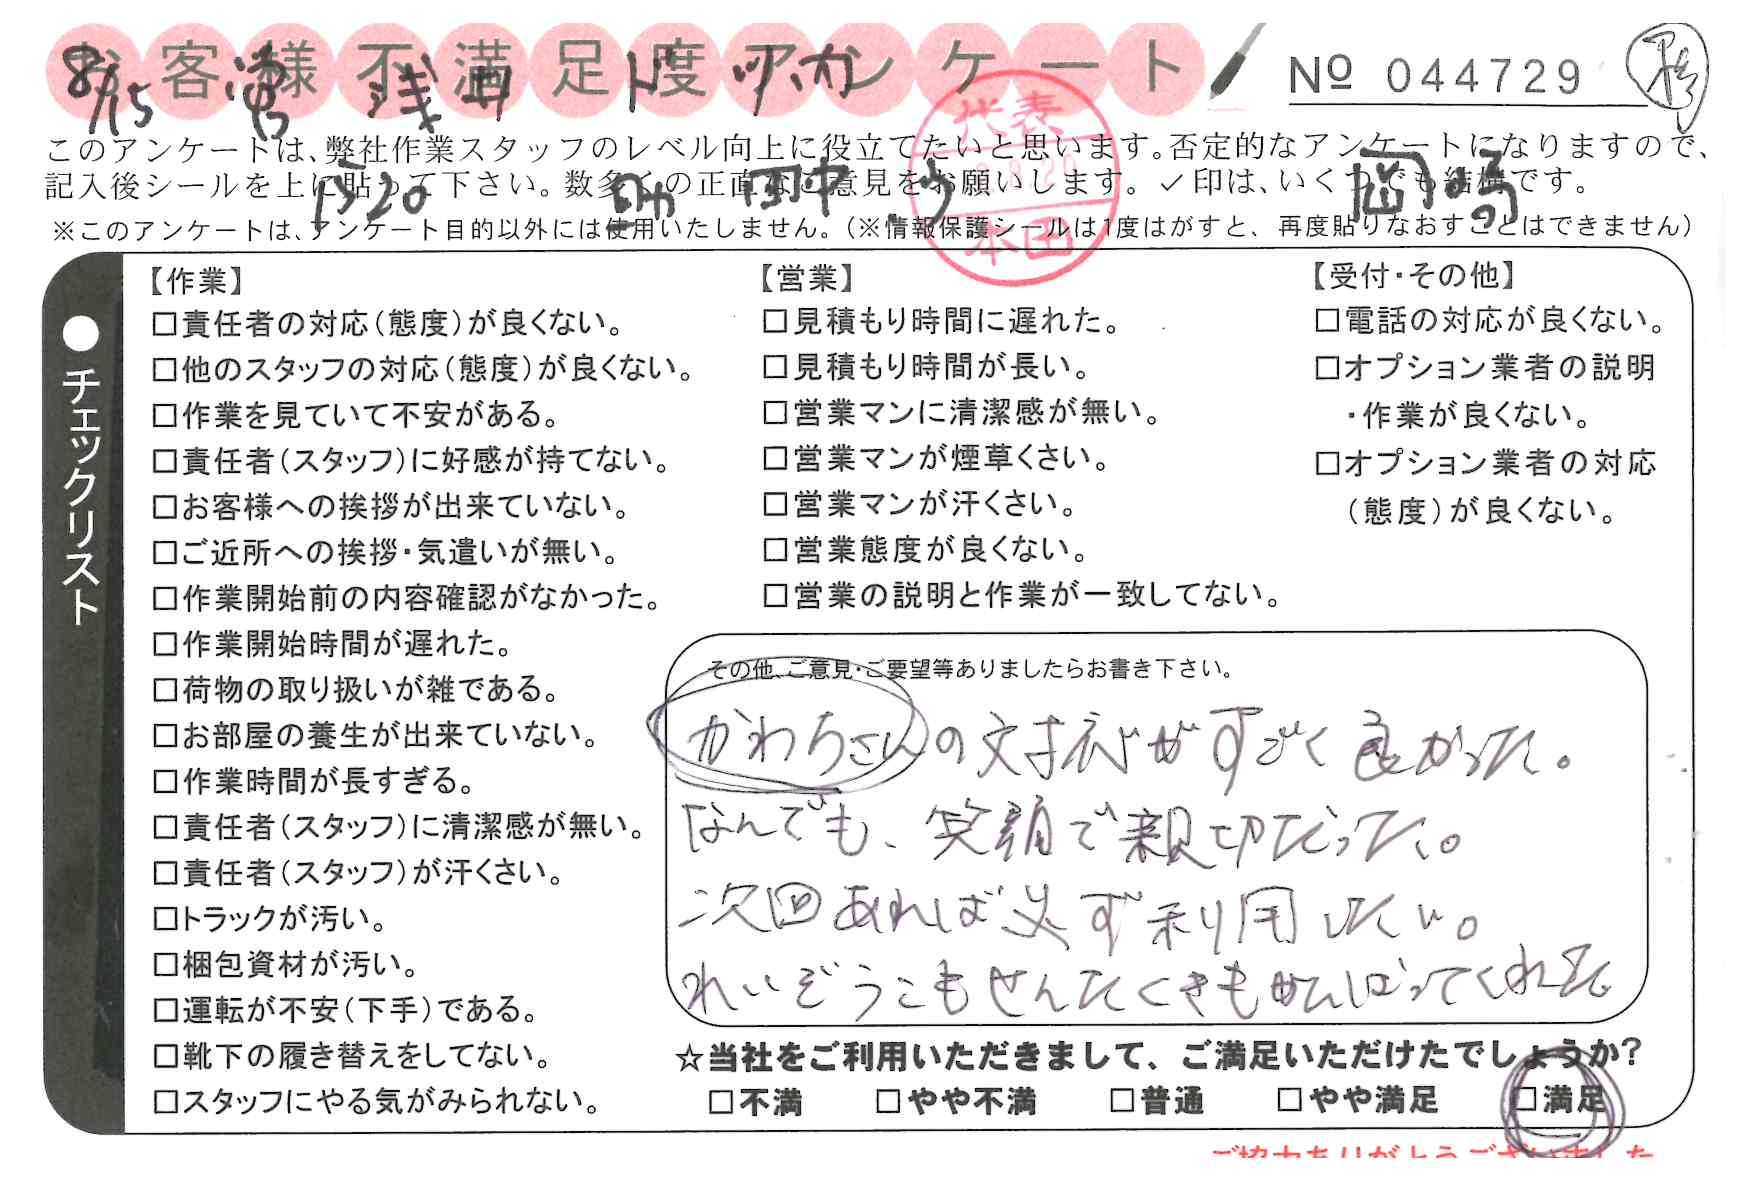 お客様不満足度アンケート
№ 044729
8/15
浅井
このアンケートは、弊社作業スタッフのレベル向上に役立てたいと思います。否定的なアンケートになりますので、
記入後シールを上に貼って下さい。数多くの正直なご意見をお願いします。✓印は、いくつでも結構です。
※このアンケートは、アンケート目的以外には使用いたしません。(※情報保護シールは1度はがすと、再度貼りなおすことはできません)
代表
本田
●チェックリスト
【作業】
□責任者の対応(態度)が良くない。
□他のスタッフの対応(態度)が良くない。
□作業を見ていて不安がある。
□責任者(スタッフ)に好感が持てない。
□お客様への挨拶が出来ていない。
□ご近所への挨拶・気遣いが無い。
□作業開始前の内容確認がなかった。
□作業開始時間が遅れた。
□荷物の取り扱いが雑である。
□お部屋の養生が出来ていない。
□作業時間が長すぎる。
□責任者(スタッフ)に清潔感が無い。
□責任者(スタッフ)が汗くさい。
□トラックが汚い。
□梱包資材が汚い。
□運転が不安(下手)である。
□靴下の履き替えをしてない。
□スタッフにやる気がみられない。
【営業】
□見積もり時間に遅れた。
□見積もり時間が長い。
□営業マンに清潔感が無い。
□営業マンが煙草くさい。
□営業マンが汗くさい。
□営業態度が良くない。
□営業の説明と作業が一致してない。
【受付・その他】
□電話の対応が良くない。
□オプション業者の説明
・作業が良くない。
□オプション業者の対応
(態度)が良くない。
その他、ご意見・ご要望等ありましたらお書き下さい。
かわちさんの対応がすごく良かった。
なんでも、笑顔で親切だった。
次回あれば必ず利用したい。
れいぞうこもせんたくきもがんばってくれた
☆当社をご利用いただきまして、ご満足いただけたでしょうか?
□不満 □やや不満 □普通 □やや満足 □満足
ご協力ありがとうございました